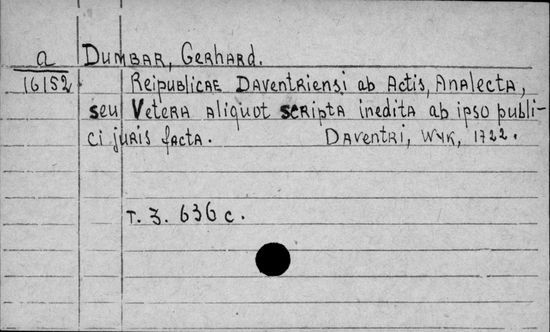 a Dumbar, Gerhard.
16152 Reipublicae Daventriensi ab Actis, Analecta,
seu Vetera aliquot scripta inedita ab ipso publi-
ci juris facta. Daventri, Wyk, 1722.
T. 3. 636 c.